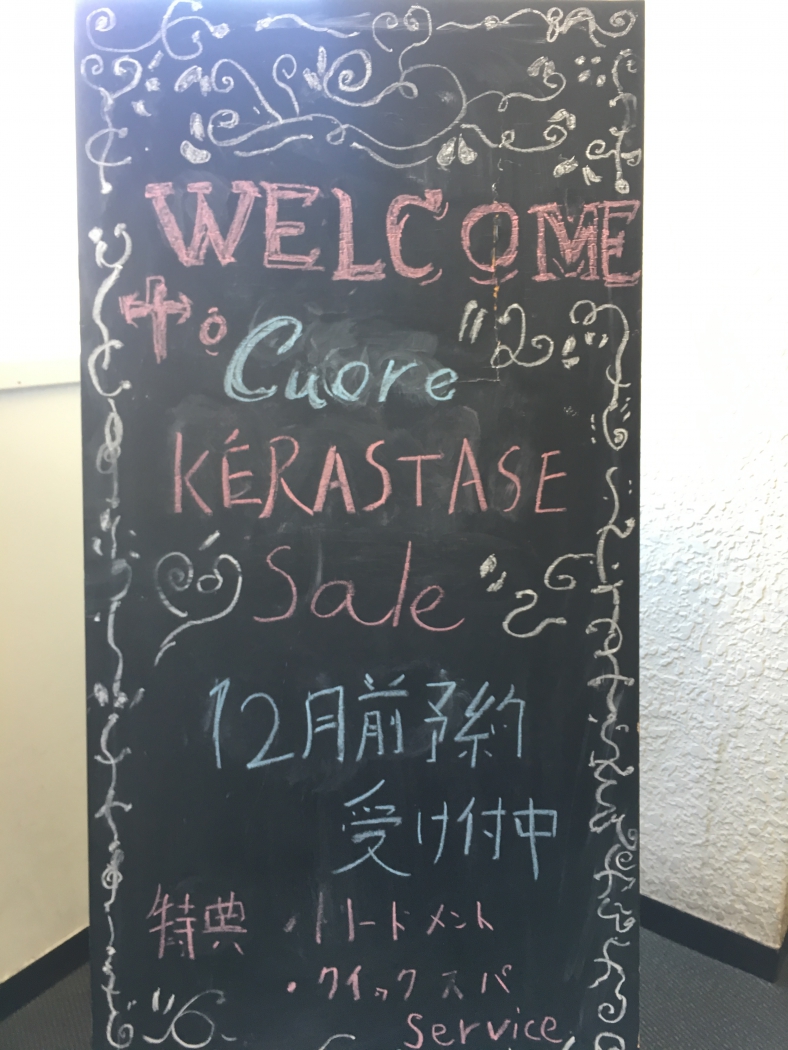 WELCOME
to Cuore
KÉRASTASE
Sale
12月前予約
受け付中
特典 ・トリードメント
・クイックスパ
Service